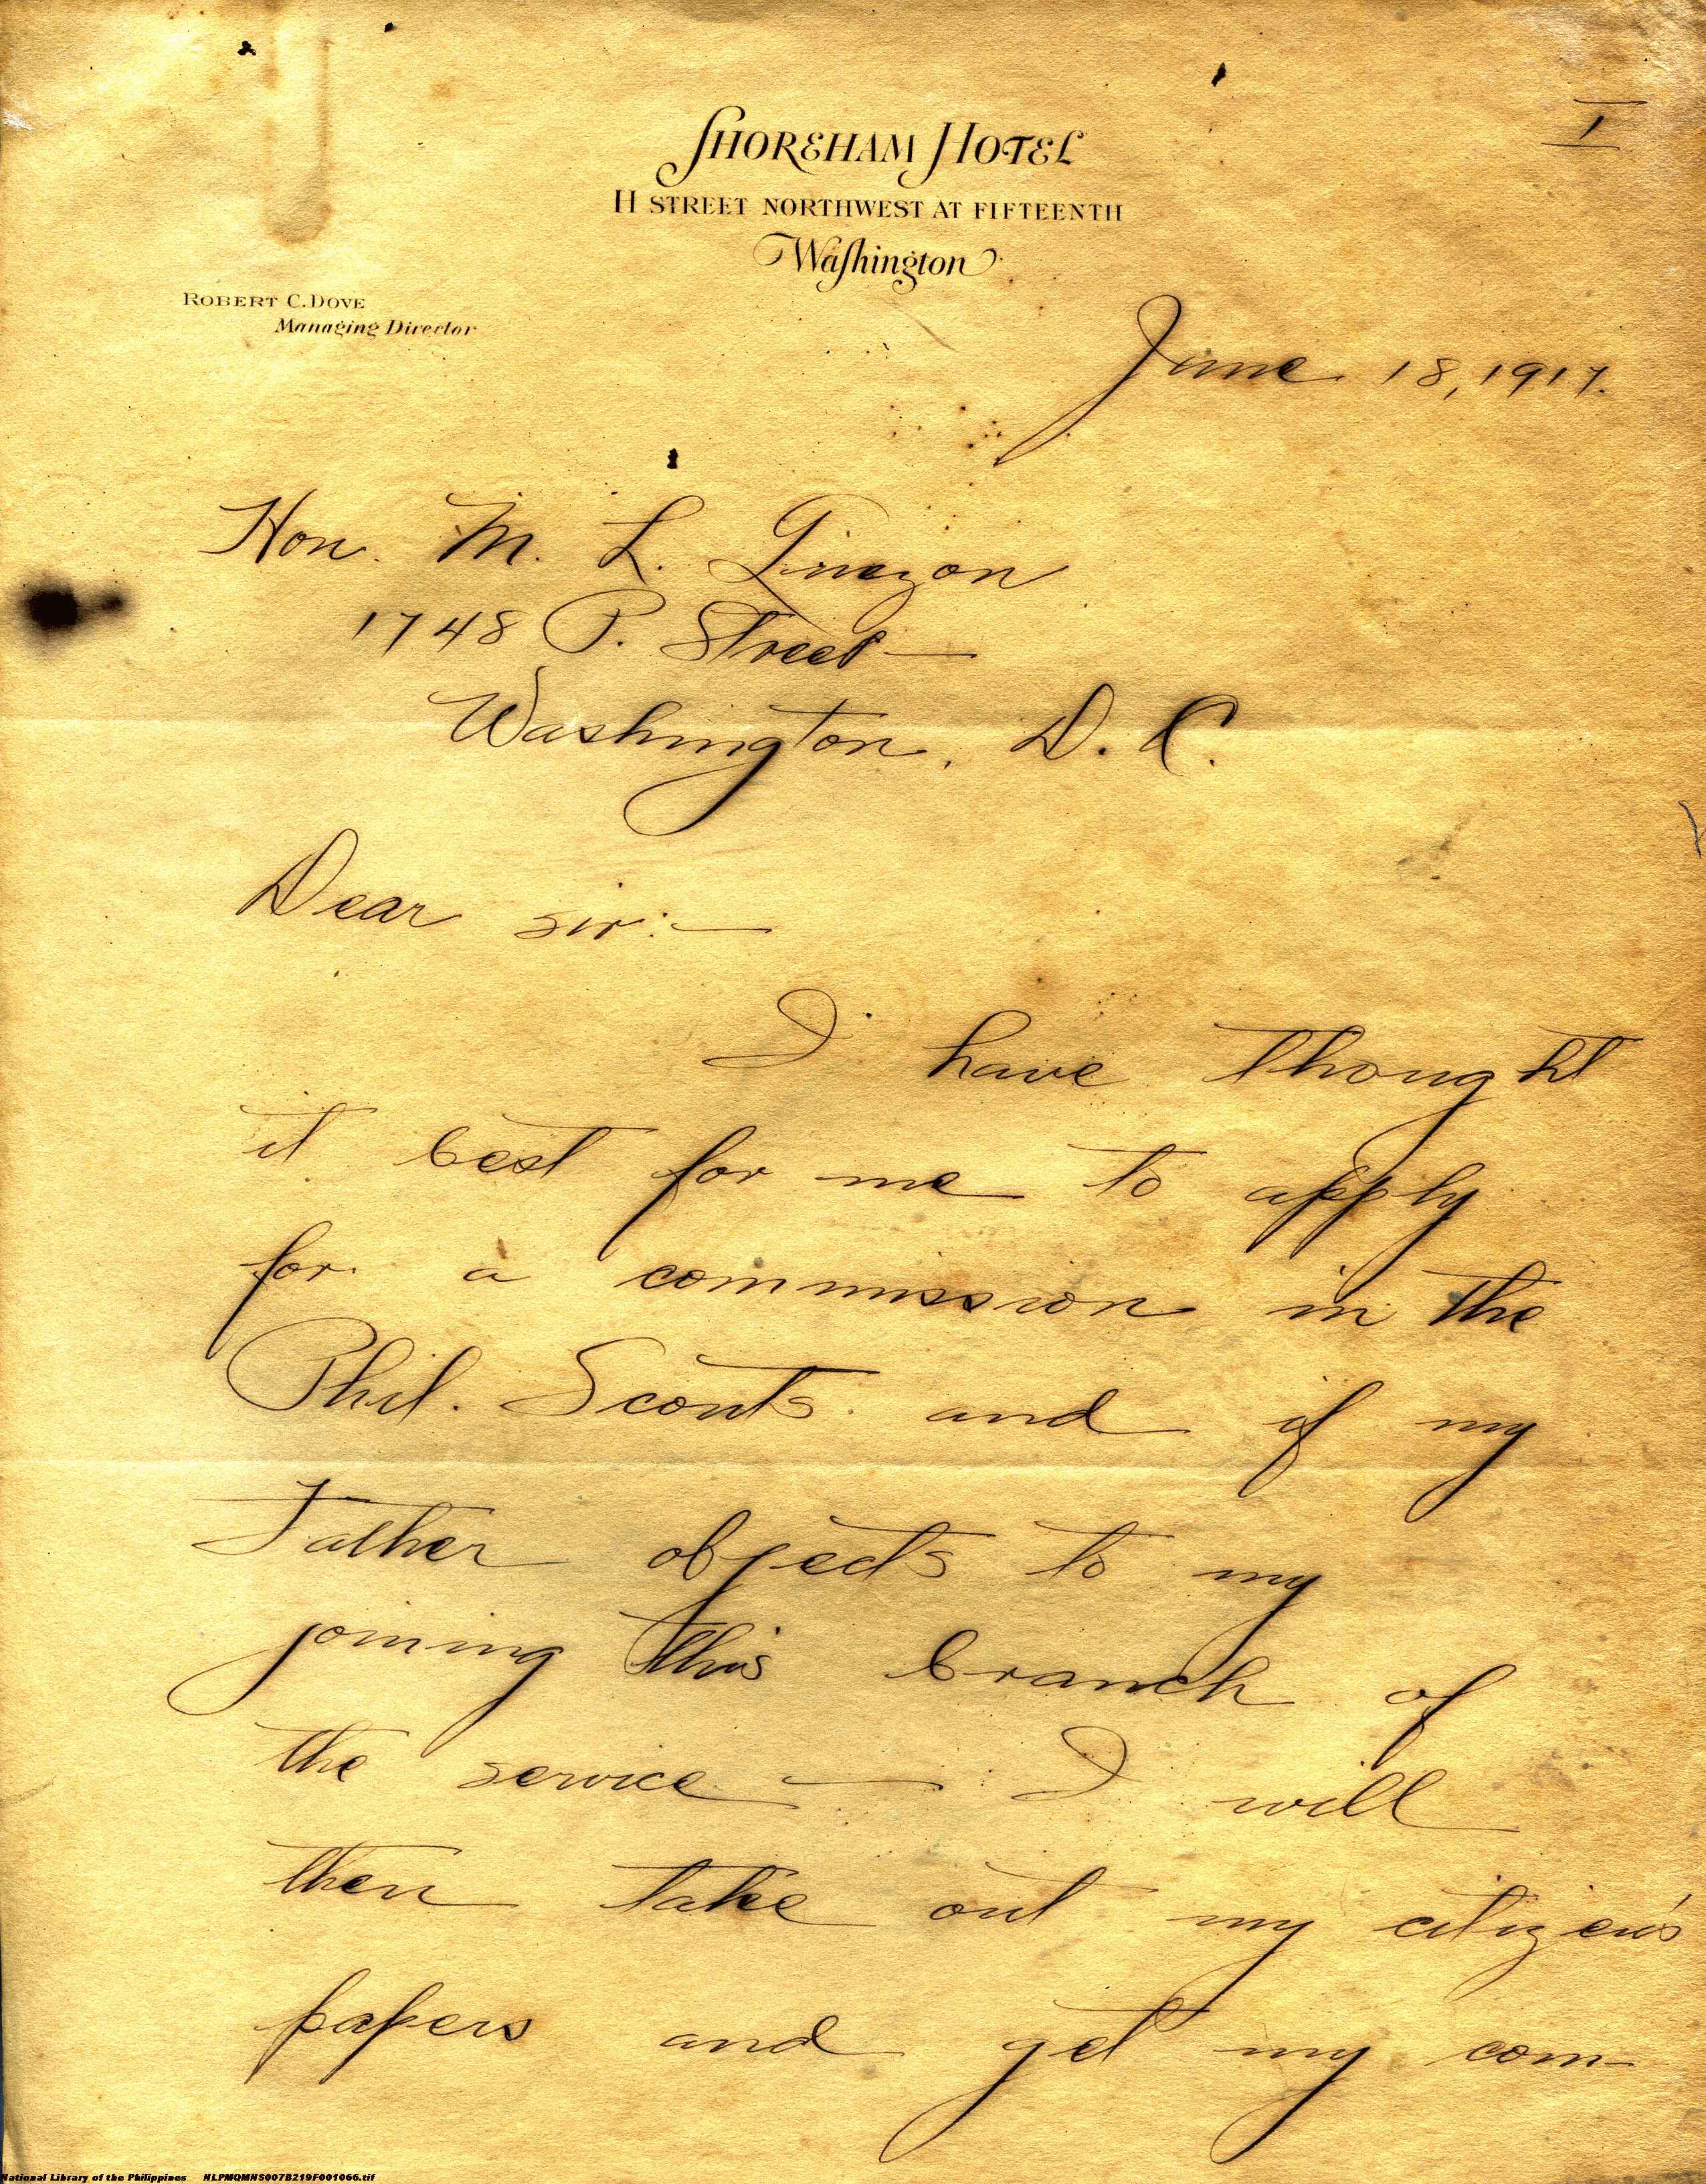 I
SHOREHAM HOTEL
H STREET NORTHWEST AT FIFTEENTH
Washington
ROBERT C. DOVE
Managing Director
June 18, 1917.
Hon. M. L. Quezon
1748 P. Street—
Washington, D. C.
Dear sir:—
I have thought
it best for me to apply
for a commission in the
Phil. Scouts and if my
Father objects to my
joining this branch of
the service — I will
then take out my citizen's
papers and get my com-
National Library of the Philippines NLPMQMNS007B219F001066.tif